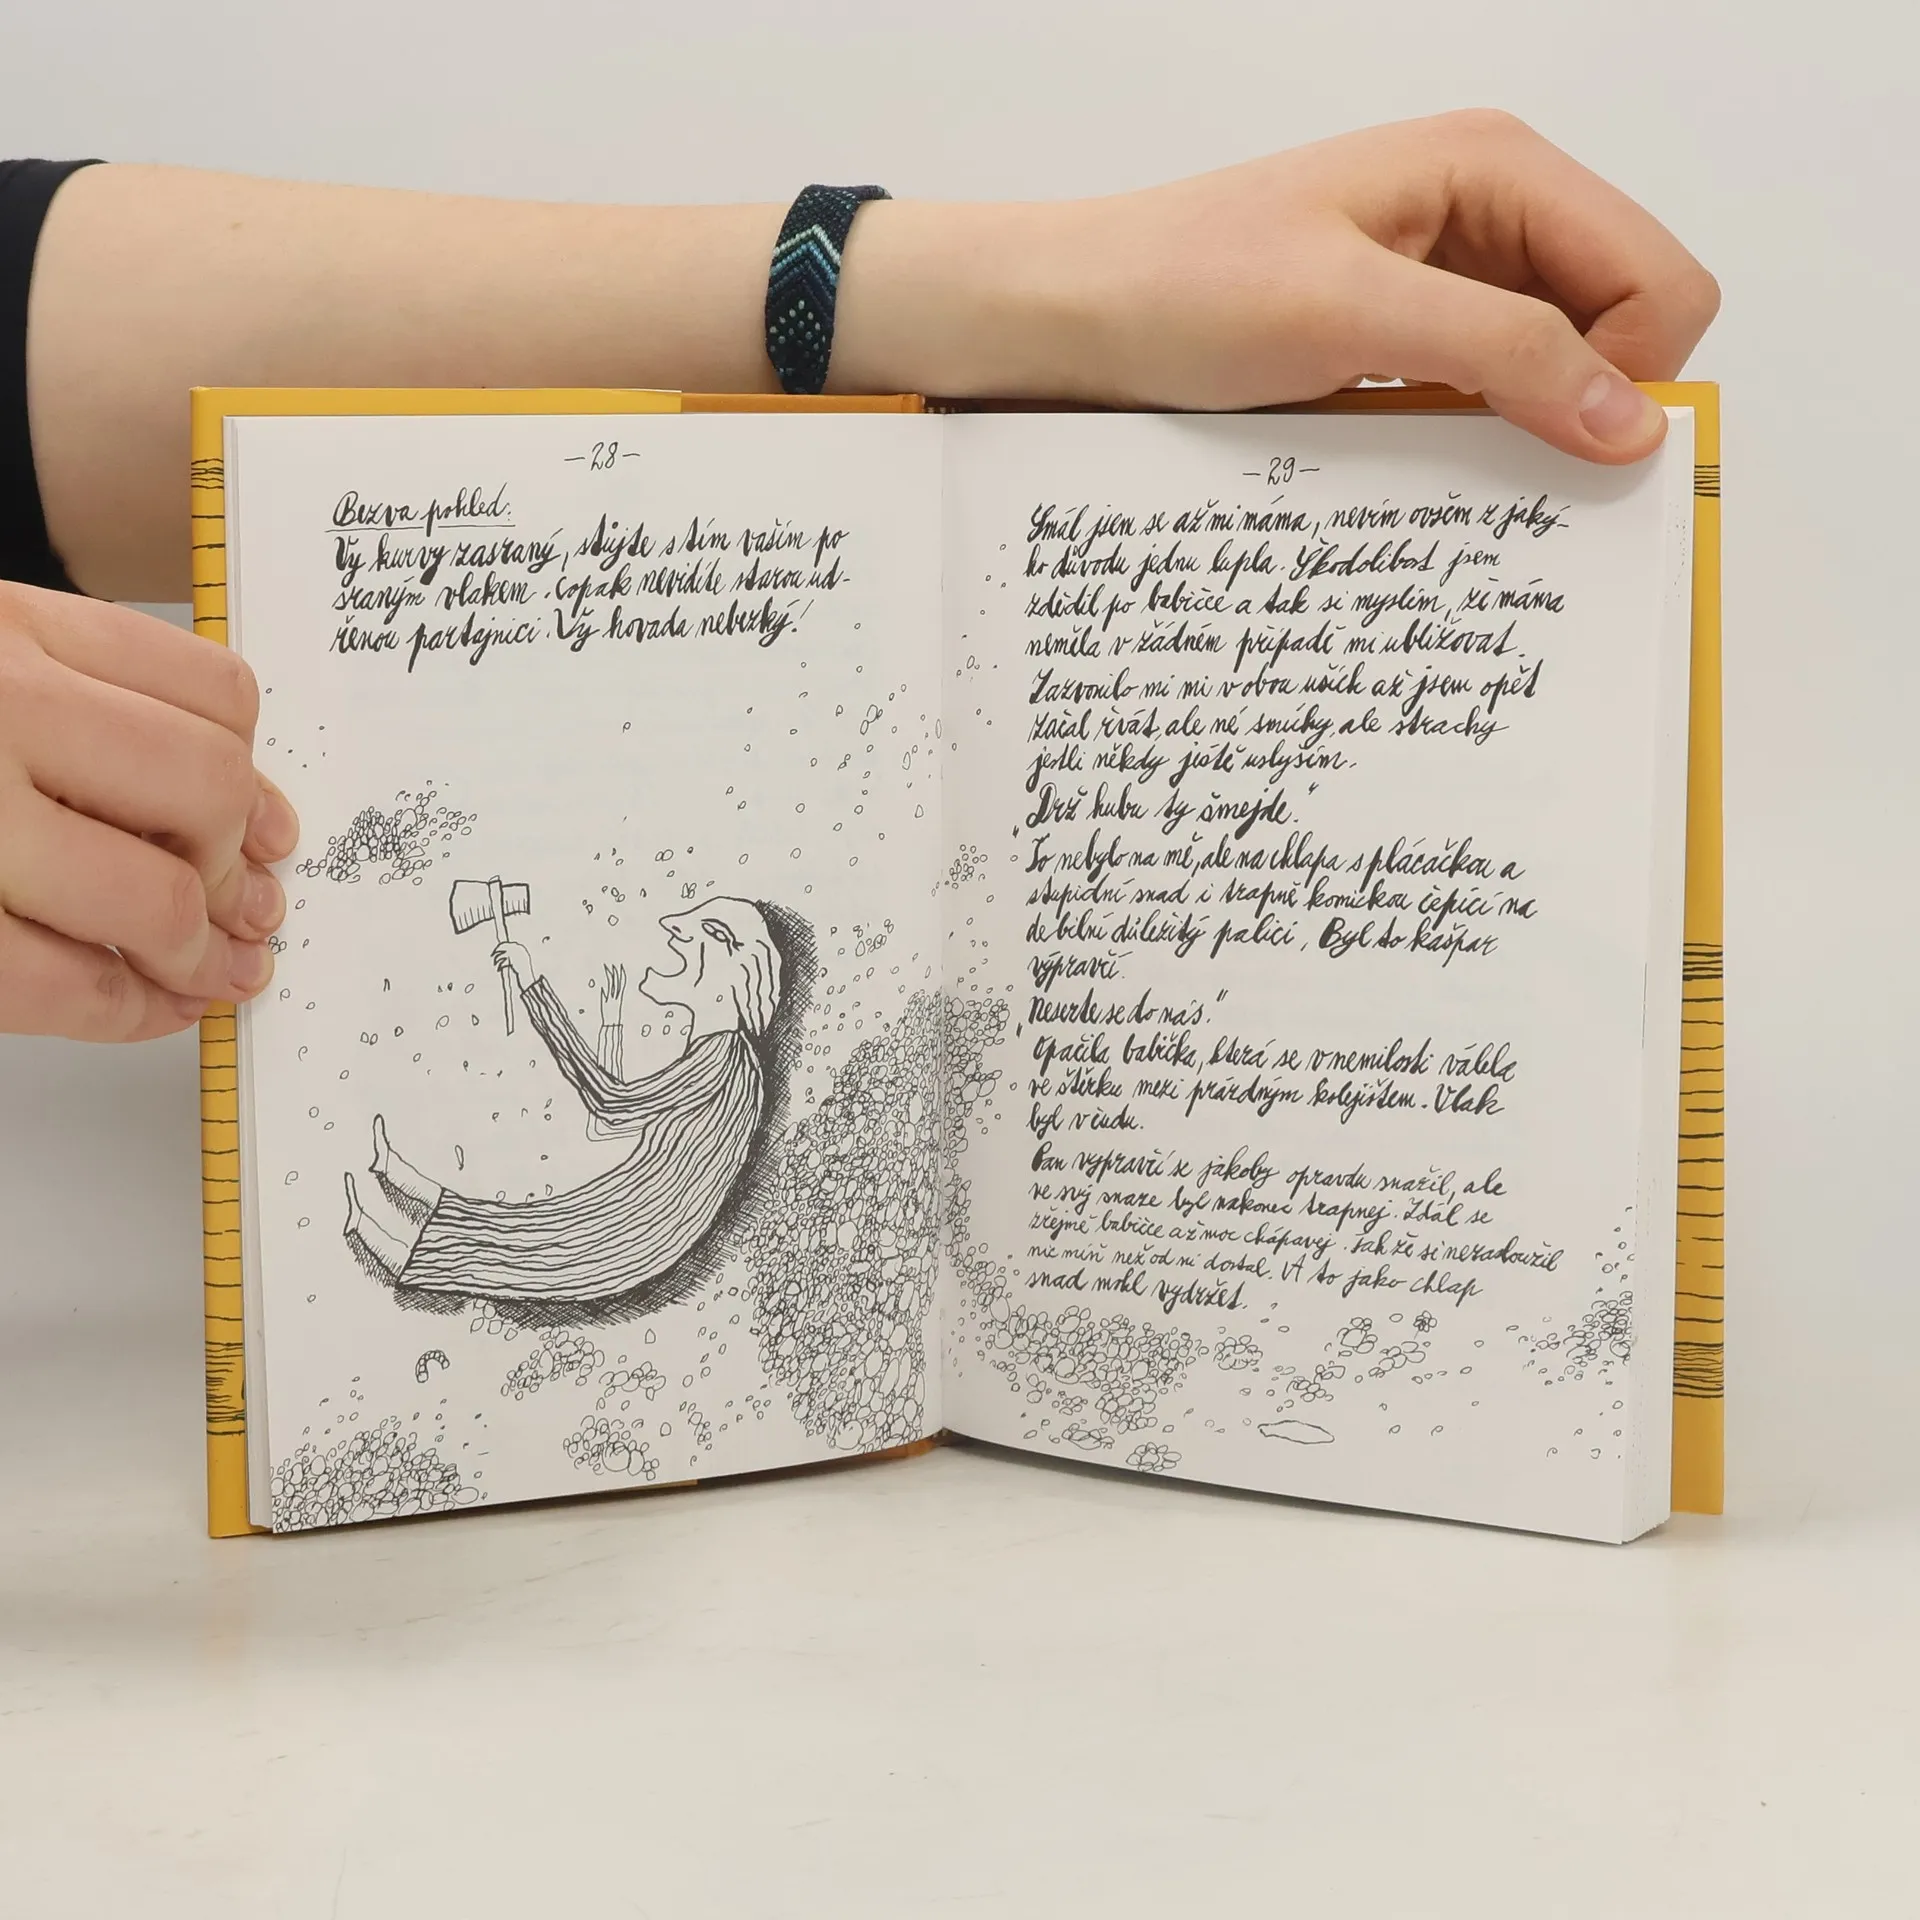 -28-
Bezva pohled:
Vy kurvy zasraný, stůjte s tím vaším po
sraným vlakem. Copak nevidíte starou ud-
řenou partajnici. Vy hovada nebezký!
-29-
Smál jsem se až mi máma, nevím ovšem z jaký-
ho důvodu jednu lupla. Škodolibost jsem
zdědil po babičce a tak si myslím, že máma
neměla v žádném případě mi ubližovat.
Zazvonilo mi mi v obou uších až jsem opět
začal řvát, ale né smíchy, ale strachy
jestli někdy ještě uslyším.
„Drž hubu ty šmejde.“
To nebylo na mě, ale na chlapa s plácačkou a
stupidní snad i trapně komickou čepicí na
debilní důležitý palici, Byl to kašpar
výpravčí.
„Neserte se do nás.“
Opáčila babička, která se v nemilosti válela
ve štěrku mezi prázdným kolejištem. Vlak
byl v čudu.
Pan výpravčí se jakoby opravdu snažil, ale
ve svý snaze byl nakonec trapnej. Zdál se
zřejmě babičce až moc chápavej. Tak že si nezasloužil
nic míň než od ní dostal. A to jako chlap
snad mohl vydržet.